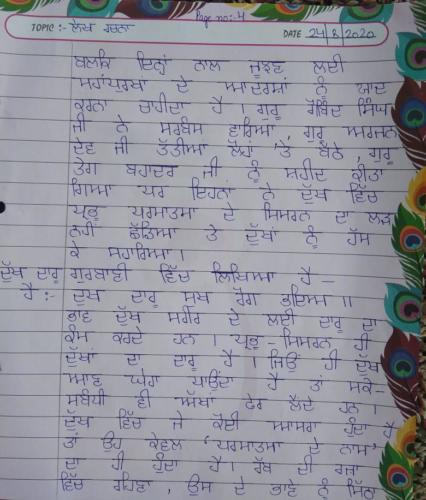 Page no:-4
TOPIC :- ਲੇਖ ਰਚਨਾ DATE 24/8/2020
ਬਲਕਿ ਇਨ੍ਹਾਂ ਨਾਲ ਜੂਝਣ ਲਈ
ਮਹਾਂਪੁਰਖਾਂ ਦੇ ਆਦਰਸ਼ਾਂ ਨੂੰ ਯਾਦ
ਕਰਨਾ ਚਾਹੀਦਾ ਹੈ । ਗੁਰੂ ਗੋਬਿੰਦ ਸਿੰਘ
ਜੀ ਨੇ ਸਰਬੰਸ ਵਾਰਿਆ , ਗੁਰੂ ਅਰਜਨ
ਦੇਵ ਜੀ ਤੱਤੀਆਂ ਲੋਹਾਂ 'ਤੇ ਬੈਠੇ , ਗੁਰੂ
ਤੇਗ ਬਹਾਦਰ ਜੀ ਨੂੰ ਸ਼ਹੀਦ ਕੀਤਾ
ਗਿਆ ਪਰ ਇਹਨਾਂ ਨੇ ਦੁੱਖ ਵਿੱਚ
ਪ੍ਰਭੂ ਪਰਮਾਤਮਾ ਦੇ ਸਿਮਰਨ ਦਾ ਲੜ
ਨਹੀਂ ਛੱਡਿਆ ਤੇ ਦੁੱਖਾਂ ਨੂੰ ਹੱਸ
ਕੇ ਸਹਾਰਿਆ ।
ਦੁੱਖ ਦਾਰੂ ਗੁਰਬਾਣੀ ਵਿੱਚ ਲਿਖਿਆ ਹੈ —
ਹੈ :- ਦੁਖ ਦਾਰੂ ਸੁਖ ਰੋਗ ਭਇਆ ॥
ਭਾਵ ਦੁੱਖ ਸਰੀਰ ਦੇ ਲਈ ਦਾਰੂ ਦਾ
ਕੰਮ ਕਰਦੇ ਹਨ । ਪ੍ਰਭੂ - ਸਿਮਰਨ ਹੀ
ਦੁੱਖਾਂ ਦਾ ਦਾਰੂ ਹੈ । ਜਿਉਂ ਹੀ ਦੁੱਖ
ਆਣ ਘੇਰਾ ਪਾਉਂਦਾ ਹੈ ਤਾਂ ਸਕੇ-
ਸਬੰਧੀ ਵੀ ਅੱਖਾਂ ਫੇਰ ਲੈਂਦੇ ਹਨ ।
ਦੁੱਖ ਵਿੱਚ ਜੇ ਕੋਈ ਆਸਰਾ ਹੁੰਦਾ ਹੈ
ਤਾਂ ਉਹ ਕੇਵਲ 'ਪਰਮਾਤਮਾ ਦੇ ਨਾਮ'
ਦਾ ਹੀ ਹੁੰਦਾ ਹੈ । ਰੱਬ ਦੀ ਰਜ਼ਾ
ਵਿੱਚ ਰਹਿਣਾ , ਉਸ ਦੇ ਭਾਣੇ ਨੂੰ ਮਿੱਠਾ